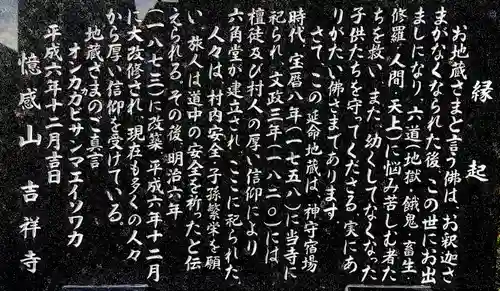 縁起
お地蔵さまと言う佛は、お釈迦さ
まがなくなられた後、この世にお出
ましになり、六道（地獄 餓鬼 畜生
修羅 人間 天上）に悩み苦しむ者た
ちを救い、また、幼くしてなくなった
子供たちを守ってくださる、実にあ
りがたい佛さまであります。
さて、この延命地蔵は、神守宿場
時代、宝暦八年（一七五八）に当寺に
祀られ、文政三年（一八二〇）には
檀徒及び村人の厚い信仰により
六角堂が建立され、ここに祀られた
人々は、村内安全・子孫繁栄を願
い、旅人は道中の安全を祈ったと伝
えられる。その後、明治六年
（一八七三）に改築、平成六年十二月
に大改修され、現在も多くの人々
から厚い信仰を受けている。
地蔵さまのご真言
オンカカビサンマエイソワカ
平成六年十二月吉日
憶感山 吉祥寺